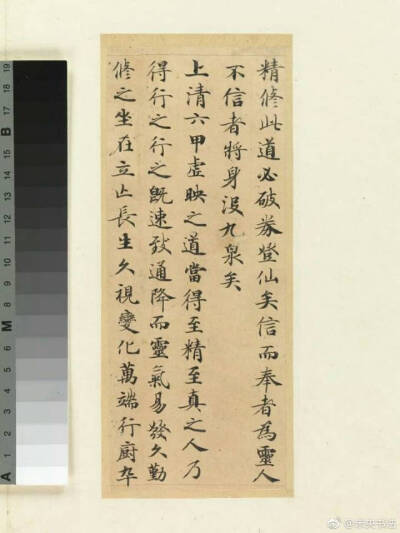 精修此道必破券登仙矣信而奉者為靈人
不信者將身沒九泉矣
上清六甲虛映之道當得至精至真之人乃
得行之行之既速致通降而靈氣易發久勤
修之坐在立亡長生久視變化萬端行廚卒
A 1 2 3 4 5 6 M 8 9 10 11 12 13 14 15 B 17 18 19